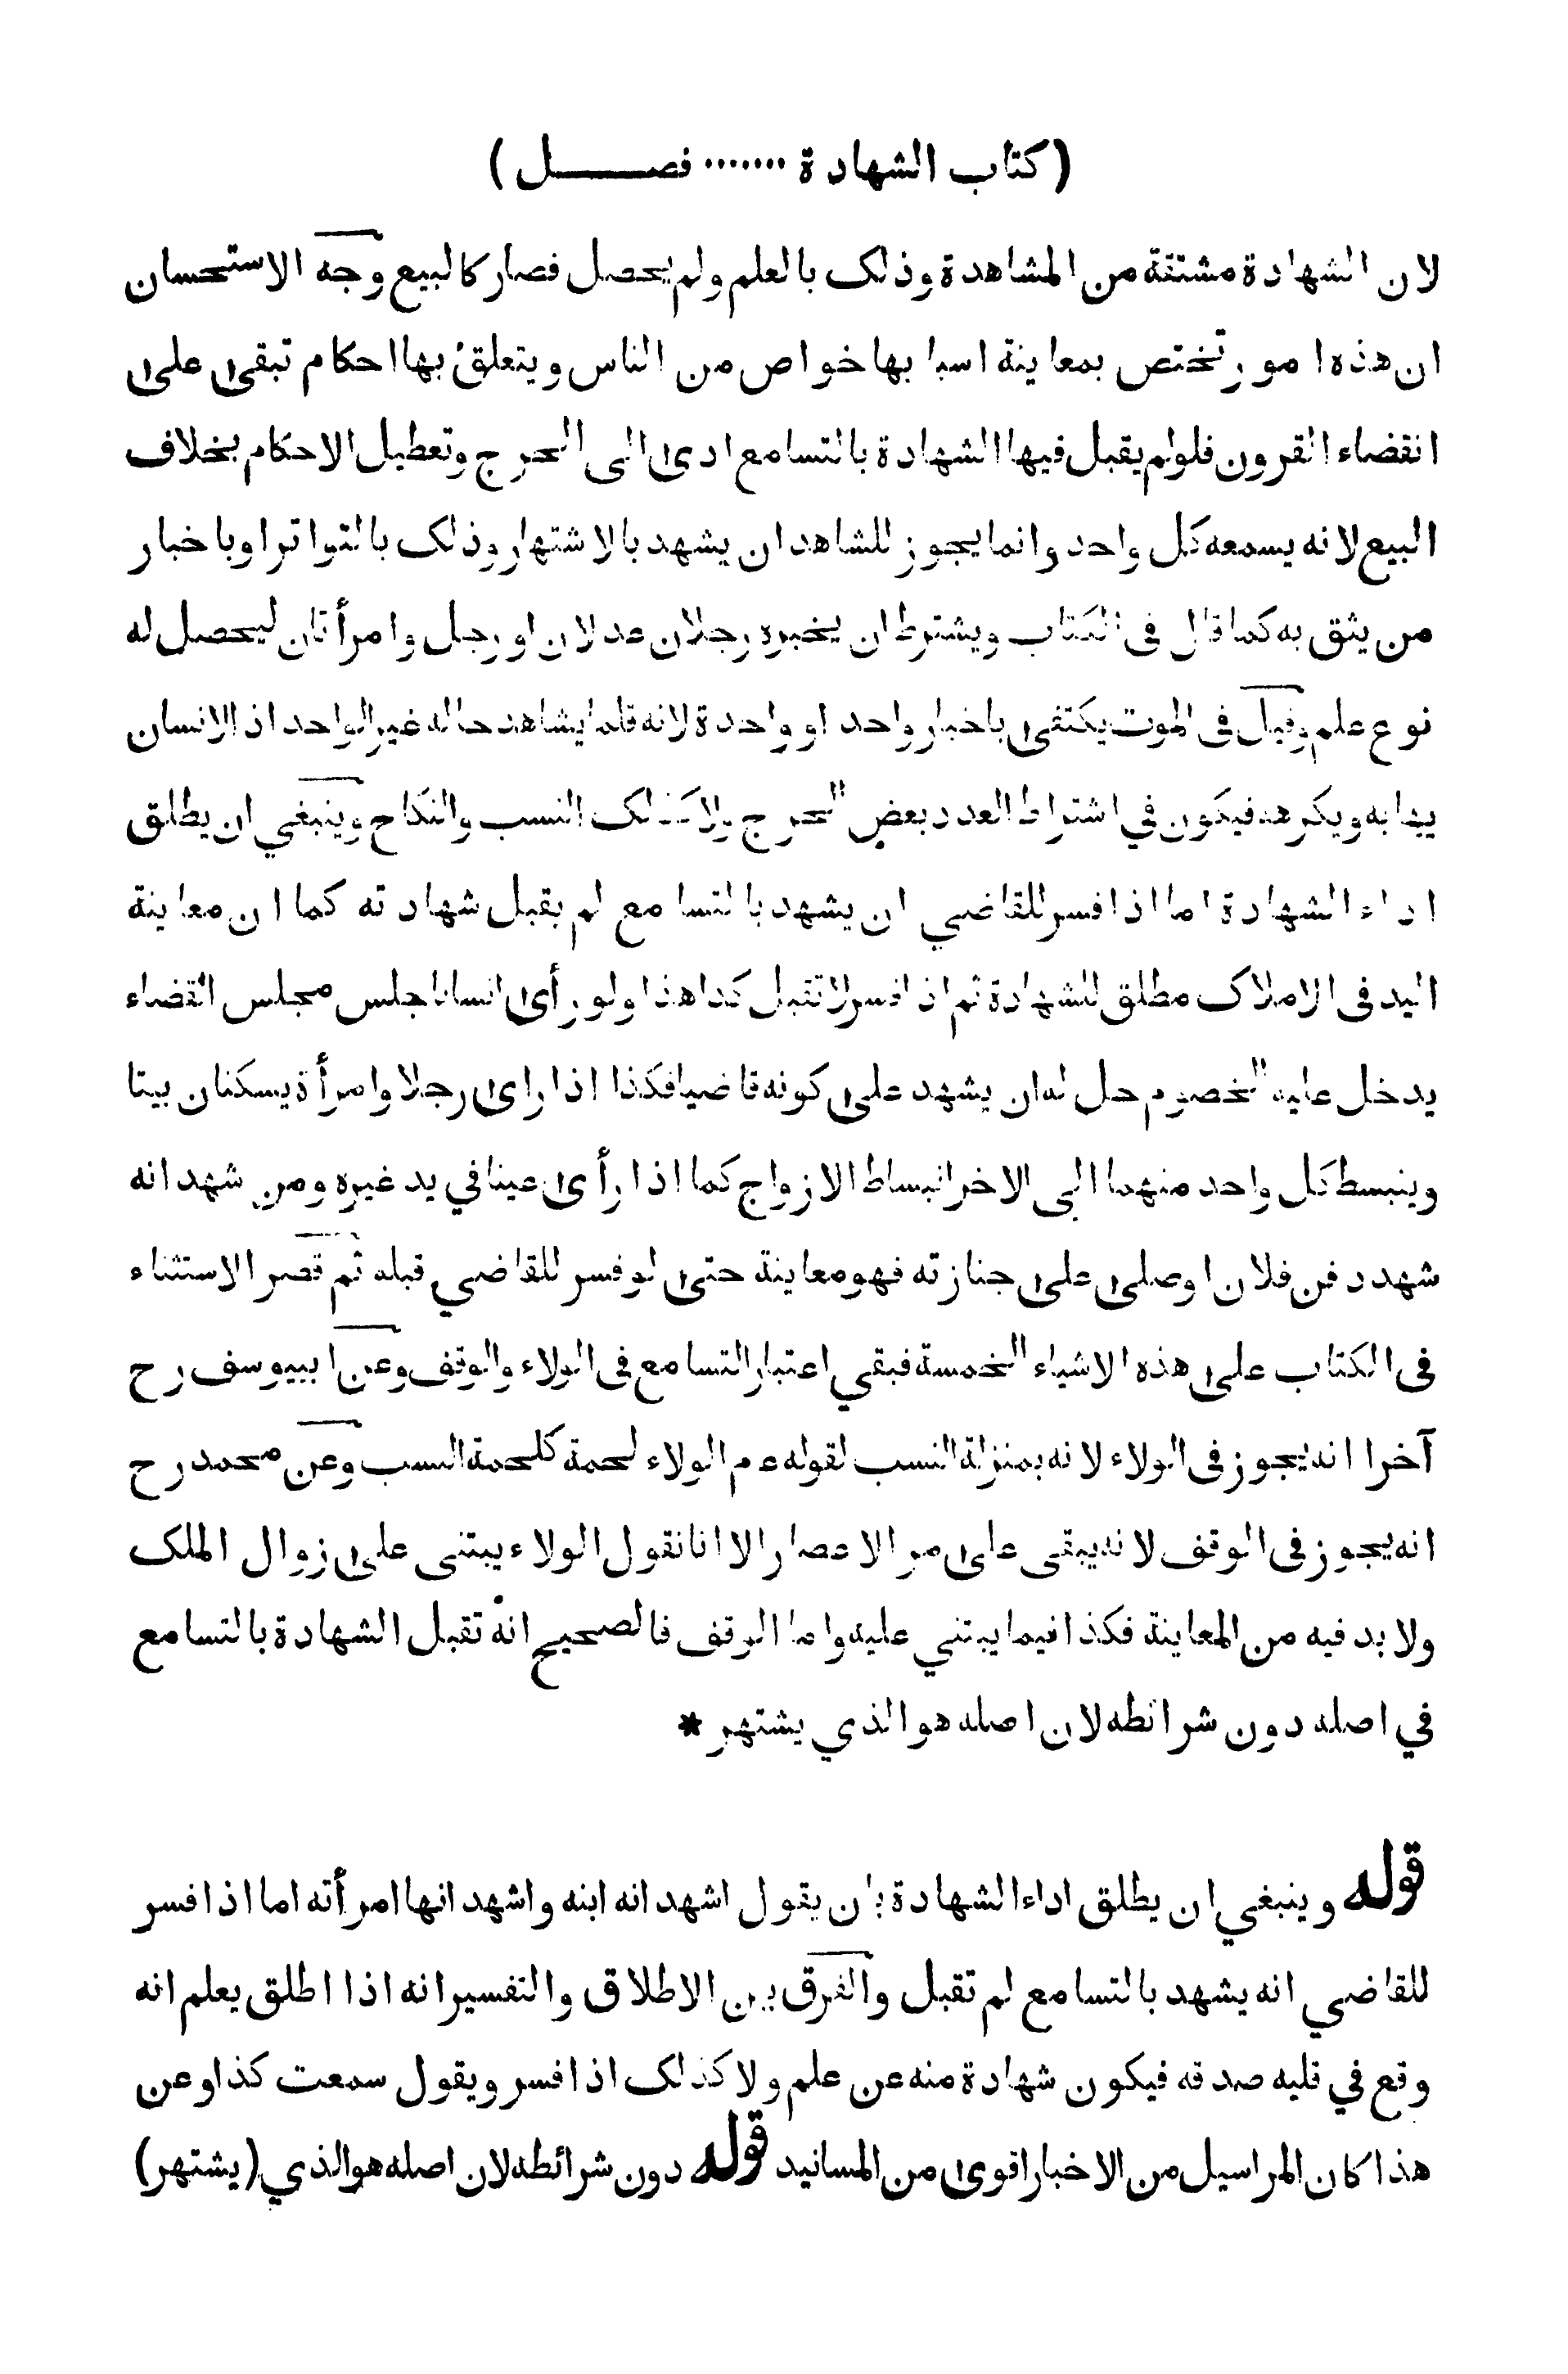 (كتاب الشهادة ······· فصــــل)
لان الشهادة مشتقة من المشاهدة وذلك بالعلم ولم يحصل فصار كالبيع وجه الاستحسان
ان هذه امور تختص بمعاينة اسبابها خواص من الناس ويتعلق بها احكام تبقى على
انقضاء القرون فلو لم يقبل فيها الشهادة بالتسامع ادى الى الحرج وتعطيل الاحكام بخلاف
البيع لانه يسمعه كل واحد وانما يجوز للشاهد ان يشهد بالاشتهار وذلك بالتواتر او باخبار
من يثق به كما قال فى الكتاب ويشترط ان يخبره رجلان عدلان او رجل وامرأتان ليحصل له
نوع علم وقيل فى الموت يكتفى باخبار واحد او واحدة لانه قلما يشاهد حاله غير الواحد اذ الانسان
يهابه ويكرهه فيكون في اشتراط العدد بعض الحرج ولا كذلك النسب والنكاح وينبغي ان يطلق
اداء الشهادة اما اذا فسر للقاضي ان يشهد بالتسامع لم يقبل شهادته كما ان معاينة
اليد فى الاملاك مطلق للشهادة ثم اذا فسر لا تقبل كذا هذا ولو رأى انسانا جلس مجلس القضاء
يدخل عليه الخصوم حل له ان يشهد على كونه قاضيا فكذا اذا راى رجلا وامرأة يسكنان بيتا
وينبسط كل واحد منهما الى الاخر انبساط الازواج كما اذا رأى عينا في يد غيره ومن شهد انه
شهد دفن فلان او صلى على جنازته فهو معاينة حتى لو فسر للقاضي قبله ثم قصر الاستثناء
فى الكتاب على هذه الاشياء الخمسة فبقي اعتبار التسامع فى الولاء والوقف وعن ابييوسف رح
آخرا انه يجوز فى الولاء لانه بمنزلة النسب لقوله عم الولاء لحمة كلحمة النسب وعن محمد رح
انه يجوز فى الوقف لانه يبقى على مر الاعصار الا انا نقول الولاء يبتنى على زوال الملك
ولا بد فيه من المعاينة فكذا فيما يبتني عليه واما الوقف فالصحيح انه تقبل الشهادة بالتسامع
في اصله دون شرائطه لان اصله هو الذي يشتهر *
قوله وينبغي ان يطلق اداء الشهادة بان يقول اشهد انه ابنه واشهد انها امرأته اما اذا فسر
للقاضي انه يشهد بالتسامع لم تقبل والفرق بين الاطلاق والتفسير انه اذا اطلق يعلم انه
وقع في قلبه صدقه فيكون شهادة منه عن علم ولا كذلك اذا فسر ويقول سمعت كذا وعن
هذا كان المراسيل من الاخبار اقوى من المسانيد قوله دون شرائطه لان اصله هو الذي (يشتهر)